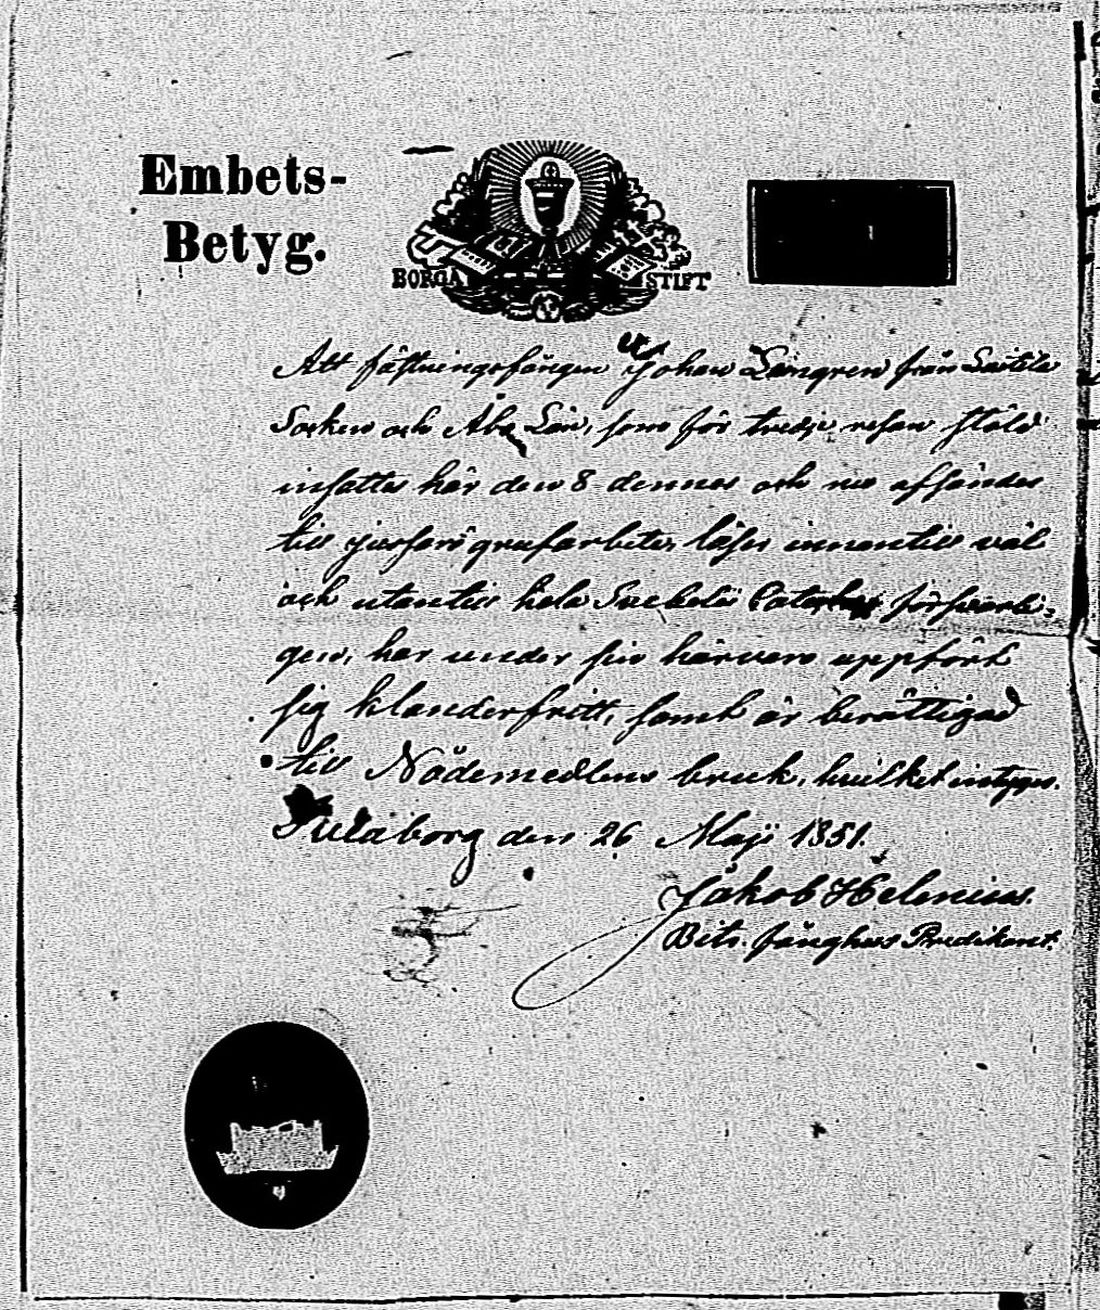 Embets-
Betyg.
BORGÅ STIFT
Att fästningsfången Johan Längren från Letala
Socken och Åbo Län, som för tredje resan stöld
insattes här den 8 dennes och nu afsändes
till grufarbete, läser innantill väl
och utantill hela Svebelii Cateches försvarli-
gen, har under sin härvaro uppfört
sig klanderfritt, samt är berättigad
till Nådemedlens bruk, hvilket intygas.
Sveaborg den 26 Maji 1851.
Jakob Helenius.
Bitr. fånghus Predikant.